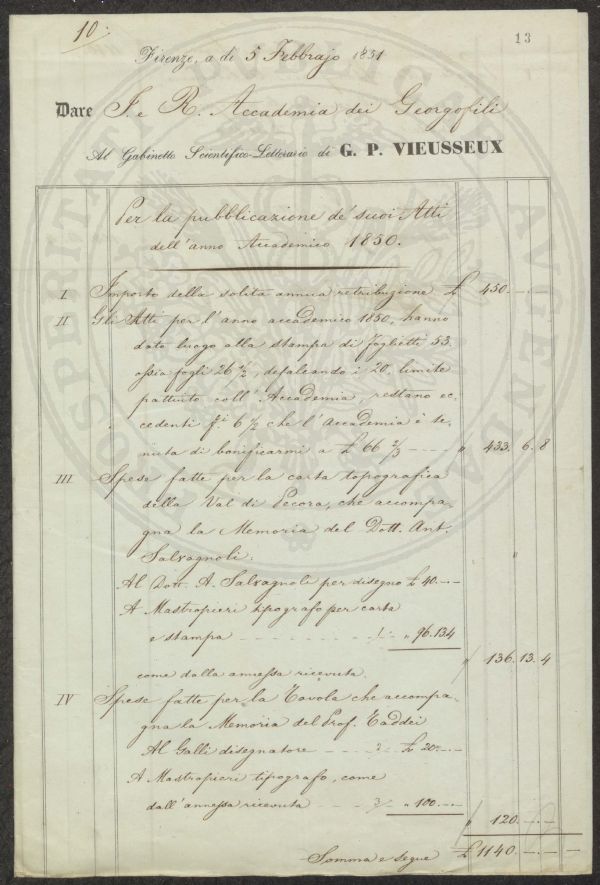 10.
13
Firenze, a dì 5 Febbrajo 1851
Dare I. e R. Accademia dei Georgofili
Al Gabinetto Scientifico-Letterario di G. P. VIEUSSEUX
PROSPERITATI PUBLICAE AUGENDAE
Per la pubblicazione de' suoi Atti
dell'anno Accademico 1850.
I Importo della solita annua retribuzione £ 450.-.-
II Gli Atti per l'anno accademico 1850, hanno
dato luogo alla stampa di foglietti 53.
ossia fogli 26 1/2, defalcando i 20, limite
pattuito coll'Accademia, restano ec-
cedenti f.i 6 1/2 che l'Accademia è te-
nuta di bonificarmi a £ 66 2/3 - - - - " 433. 6. 8
III Spese fatte per la carta topografica
della Val di Pecora, che accompa-
gna la Memoria del Dott. Ant.
Salvagnoli:
Al Dott. A. Salvagnoli per disegno £ 40.-.-
A Mastropieri tipografo per carta
e stampa - - - - - - " 96.13.4
" 136. 13. 4
come dalla annessa ricevuta.
IV Spese fatte per la Tavola che accompa-
gna la Memoria del Prof. Taddei
Al Galli disegnatore - - - £ 20.-.-
A Mastropieri tipografo, come
dall'annessa ricevuta - - - " 100.-.-
" 120.-.-
Somma e segue £ 1140.-.-